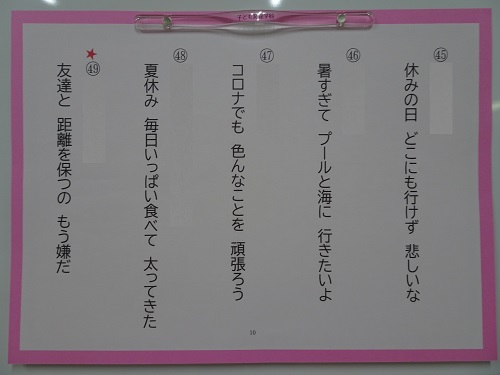 ㊺
休みの日 どこにも行けず 悲しいな
㊻
暑すぎて プールと海に 行きたいよ
㊼
コロナでも 色んなことを 頑張ろう
㊽
夏休み 毎日いっぱい食べて 太ってきた
★
㊾
友達と 距離を保つの もう嫌だ
10